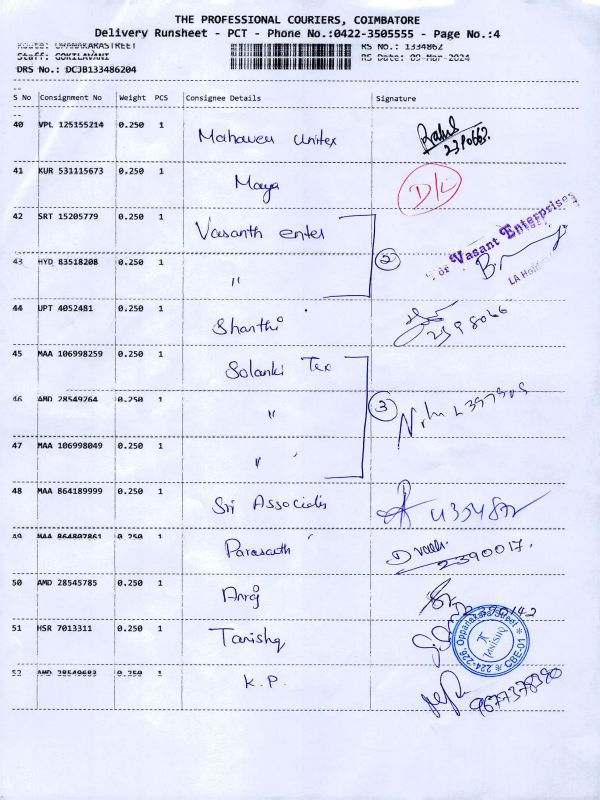 THE PROFESSIONAL COURIERS, COIMBATORE
Delivery Runsheet - PCT - Phone No.:0422-3505555 - Page No.:4
Staff: GOKILAVANI
RS No.: 1334862
RS Date: 09-Mar-2024
DRS No.: DCJB133486204
S No Consignment No Weight PCS Consignee Details Signature
40 VPL 125155214 0.250 1 Mahaveer Unitex
41 KUR 531115673 0.250 1 Maya D/L
42 SRT 15205779 0.250 1 Vasanth enter
For Vasant Enterprises
43 HYD 83518208 0.250 1 " 2
44 UPT 4052481 0.250 1 Shanthi
45 MAA 106998259 0.250 1 Solanki Tex
46 AMD 28549264 0.250 1 " 3
47 MAA 106998049 0.250 1 "
48 MAA 864189999 0.250 1 Sri Associates
49 MAA 864807861 0.250 1 Parasanth 2390017.
50 AMD 28545785 0.250 1 Anroj
51 HSR 7013311 0.250 1 Tanishq
224-226, Oppanakara Street CBE-01
52 AMD 28549683 0.250 1 K.P.